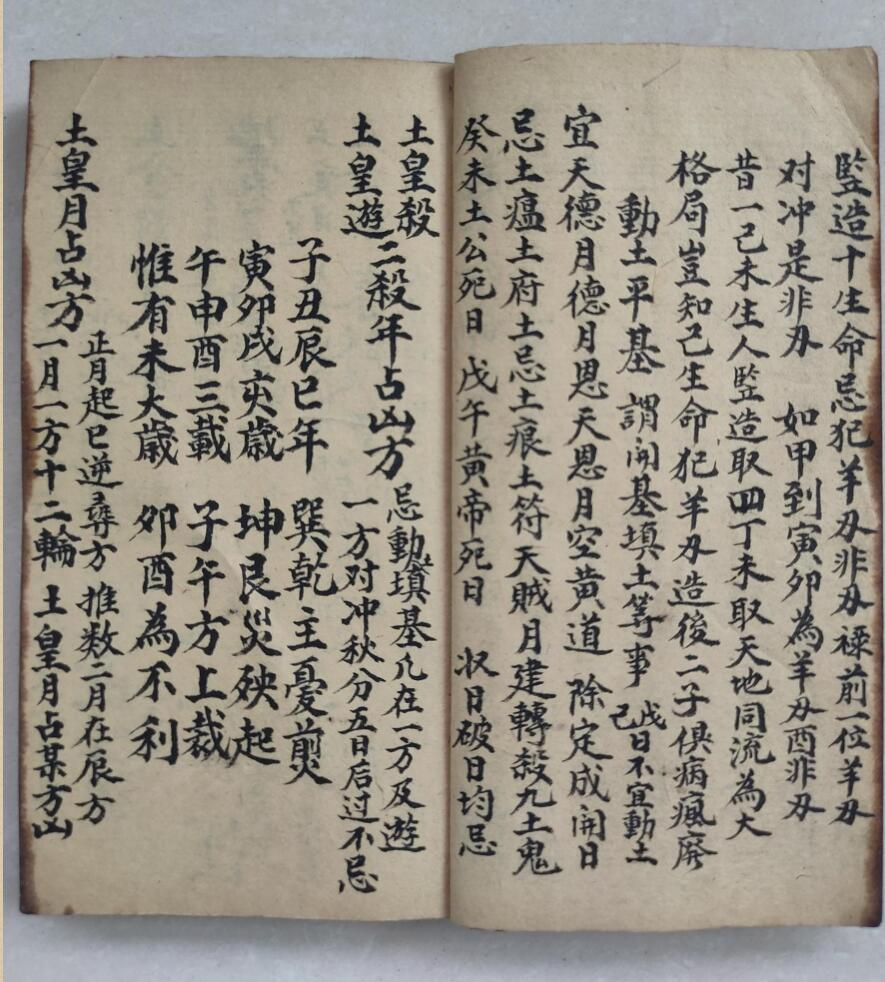 竪造十生命忌犯羊刃非刃禄前一位羊刃
对冲是非刃　如甲到寅卯為羊刃酉非刃
昔一己未生人竪造取四丁未取天地同流為大
格局豈知己生命犯羊刃造後二子俱病瘋廃
動土平基　謂開基填土等事　戊己日不宜動土
宜天德月德月恩天恩月空黄道　除定成開日
忌土瘟土府土忌土痕土符天賊月建轉殺九土鬼
癸未土公死日　戊午黄帝死日　収日破日均忌
土皇殺
土皇遊
二殺年占凶方
忌動土填基凢在一方及遊
一方对冲秋分五日后过不忌
子丑辰巳年　巽乾主憂煎
寅卯戌亥歲　坤艮災殃起
午申酉三載　子午方上裁
惟有未大歲　卯酉為不利
土皇月占凶方
正月起巳逆尋方　推数二月在辰方
一月一方十二輪　土皇月占某方凶